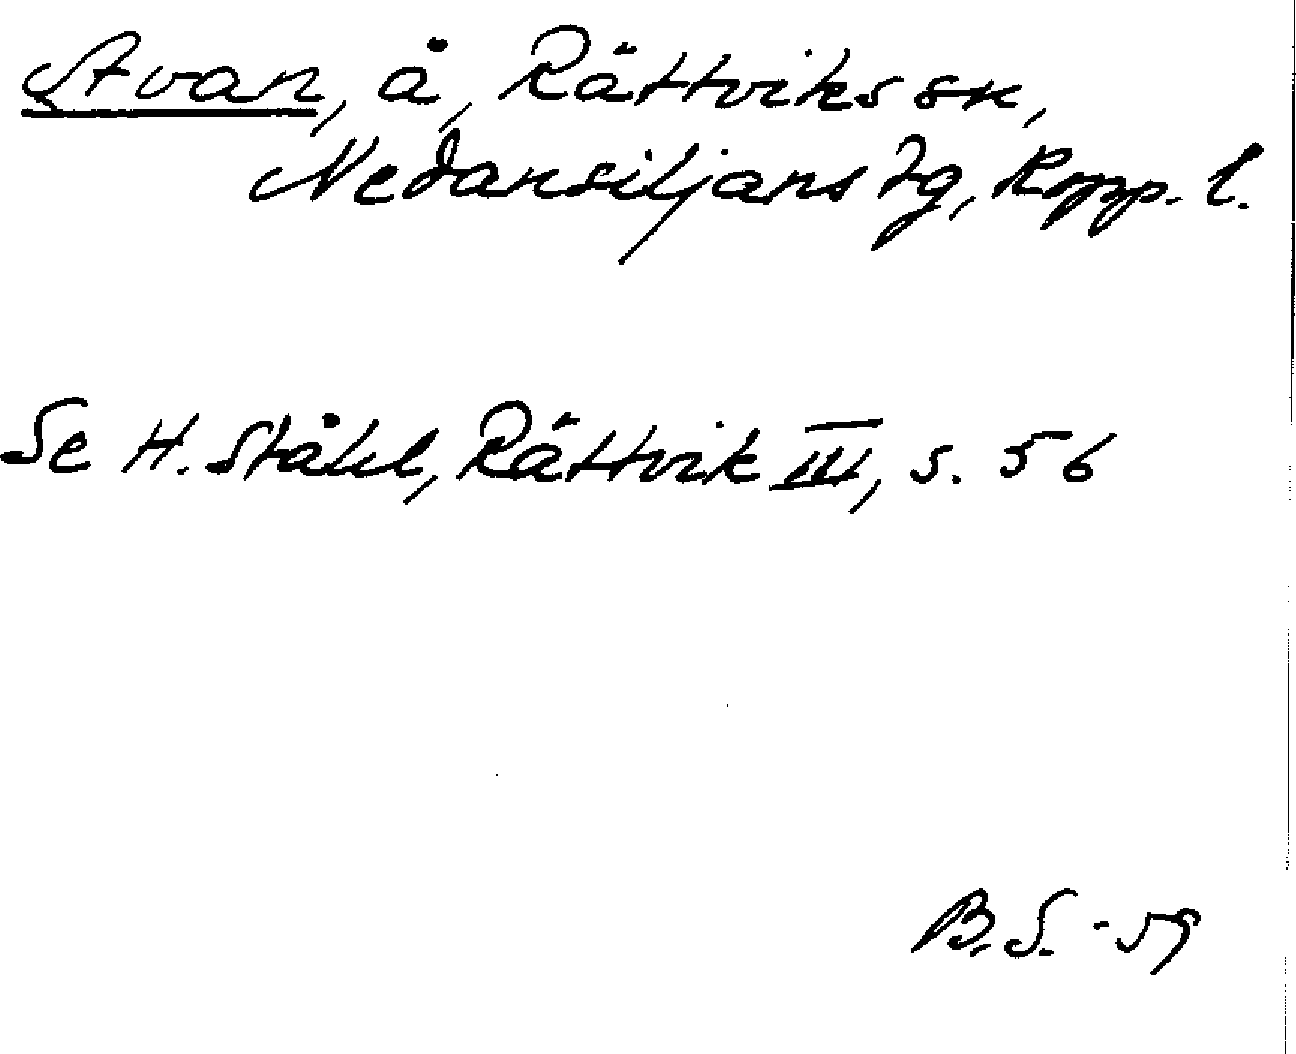 Avan, å, Rättviks sn,
Nedansiljans tg, Kopp. l.
Se H. Ståhl, Rättvik III, s. 56
B. S. -59